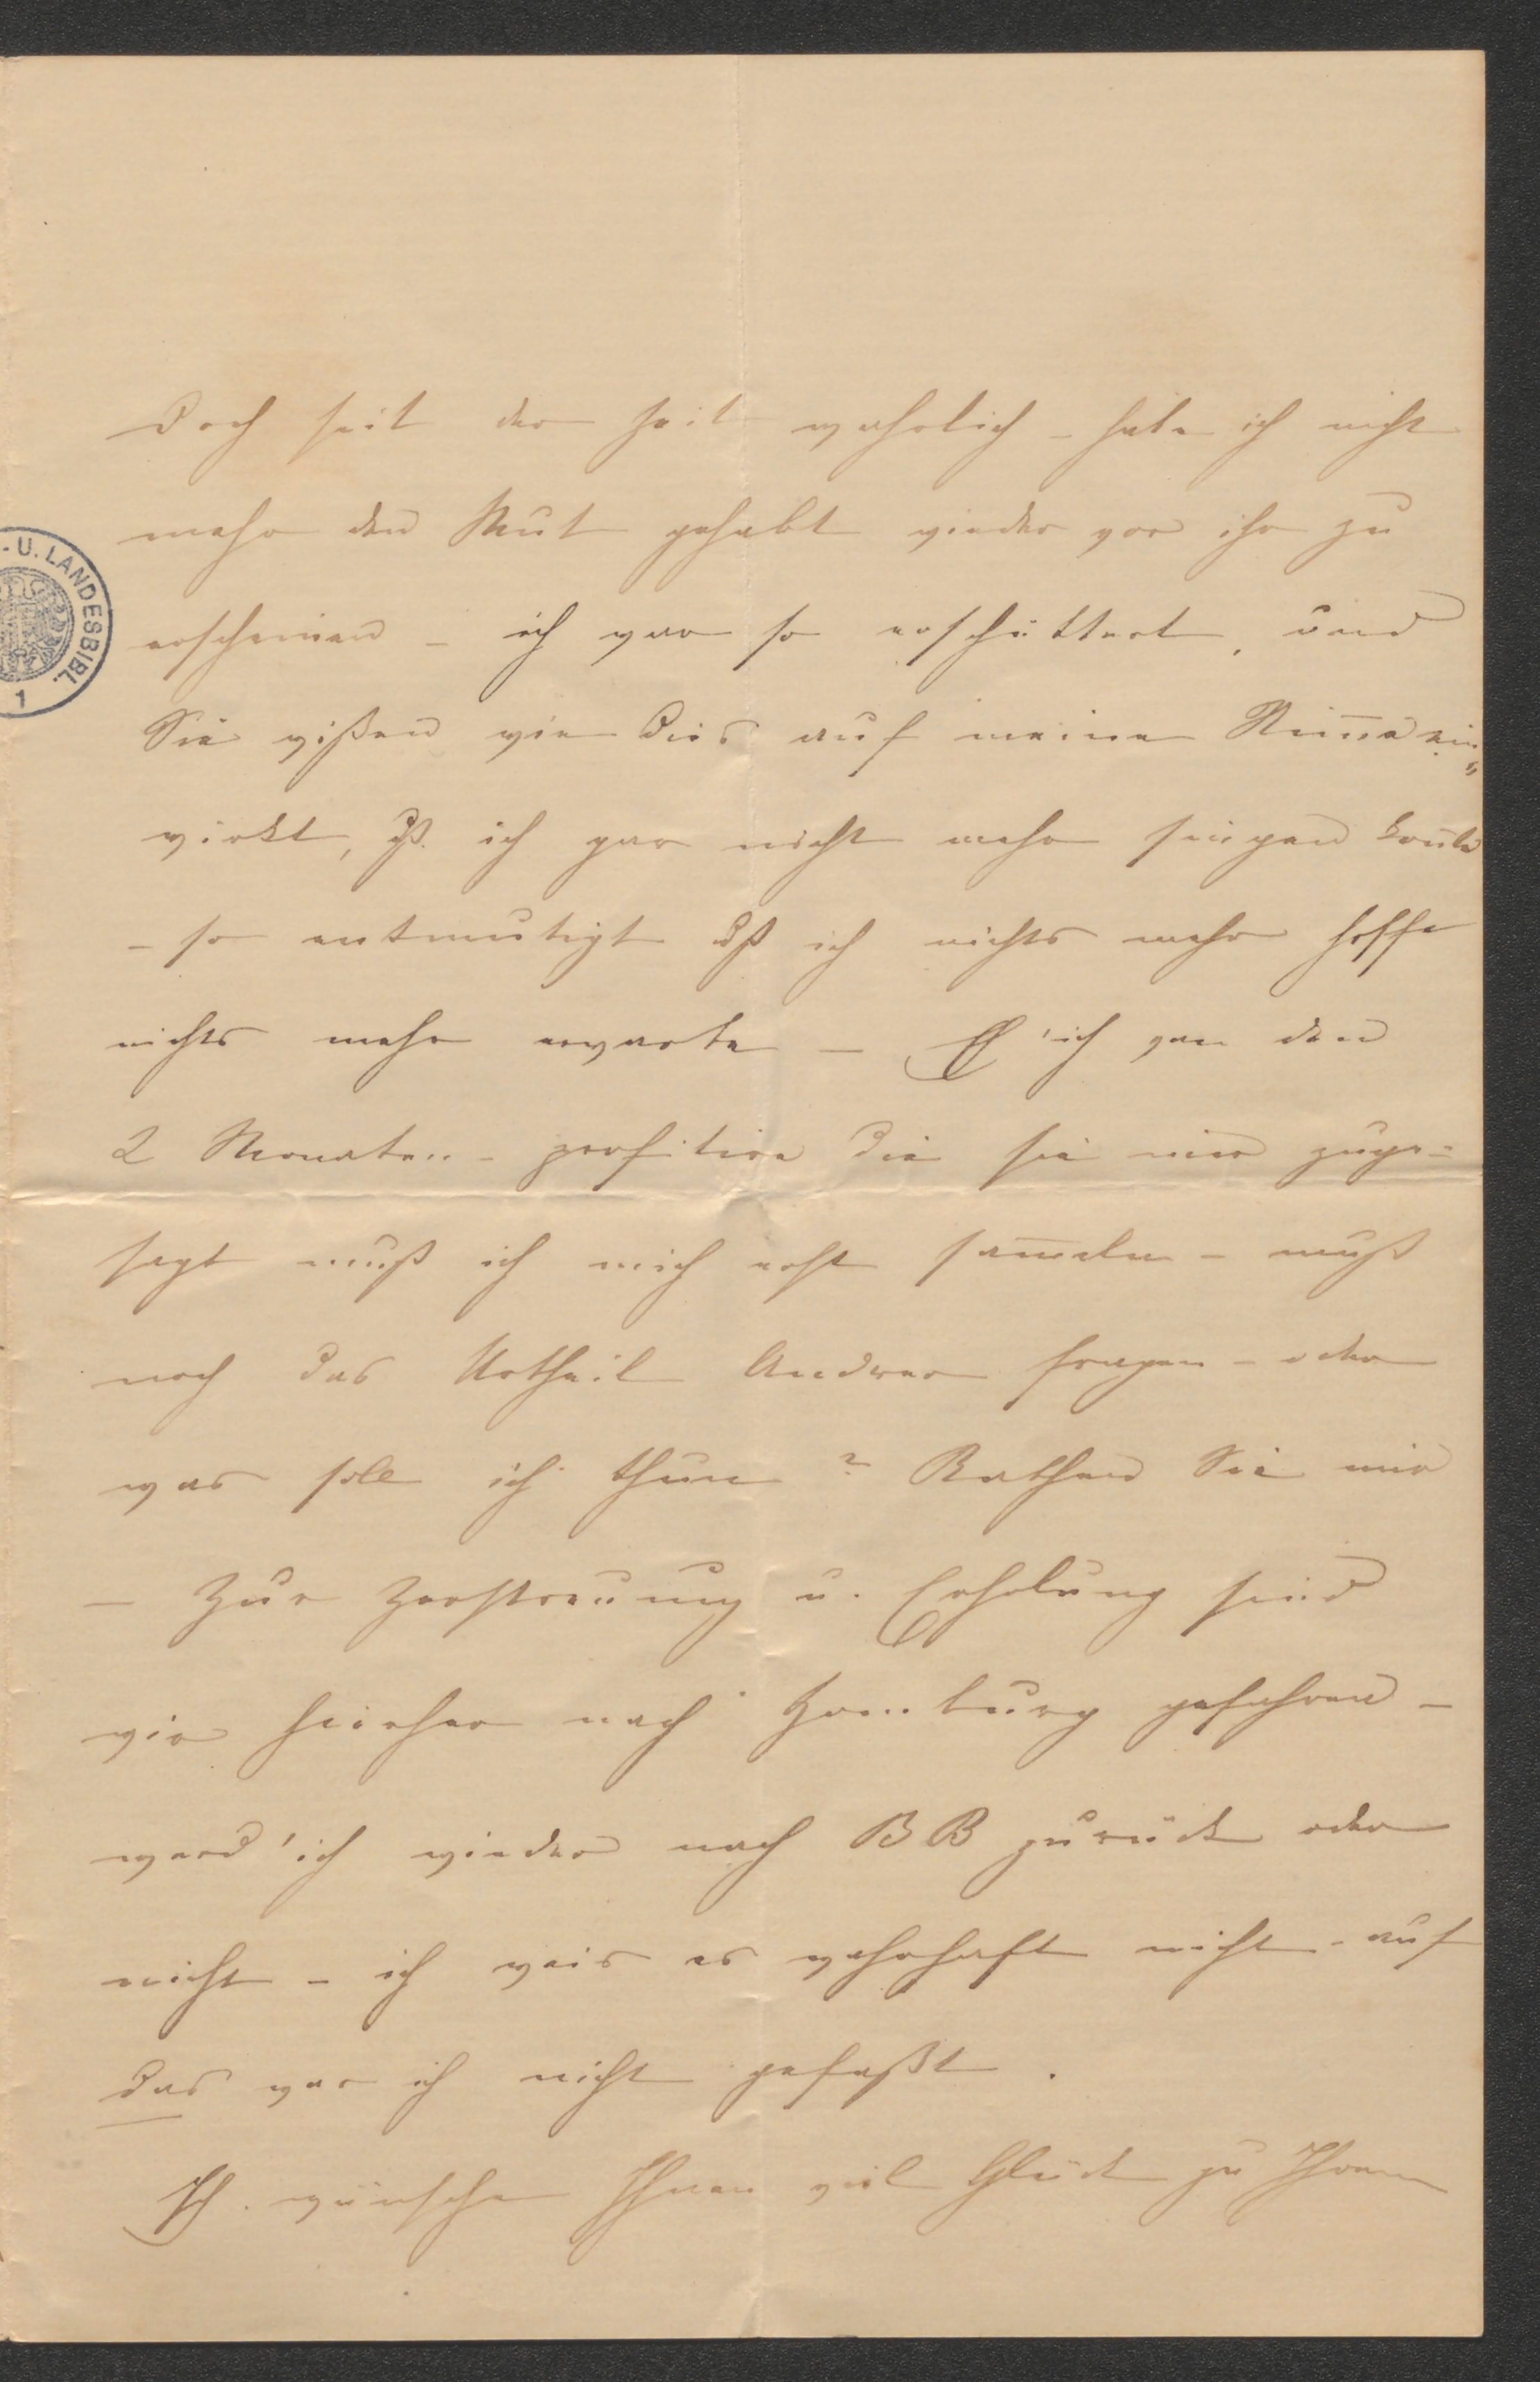 Doch seit der Zeit wahrlich – habe ich nicht
mehr den Mut gehabt wieder vor ihr zu
erscheinen – ich war so erschüttert, und
Sie wißen wie Dies auf meine Stim̄e ein„
wirkt, dß. ich gar nicht mehr singen kon̄te
– so entmutigt dß ich nichts mehr hoffe
nichts mehr erwarte – Eh' ich von den
2 Monaten – profitire die sie mir zuge=
sagt muß ich mich erst sam̄eln – muß
noch das Urtheil Anderer fragen – oder
was soll ich thun? Rathen Sie mir
– Zur Zerstreuung u. Erholung sind
wir hierher nach Homburg gefahren –
werd' ich wieder nach BB zurück oder
nicht – ich weis es wahrhaft nicht – auf
das war ich nicht gefaßt.
Ich wünsche Ihnen viel Glück zu Ihrem
-U. LANDESBIBL.
1